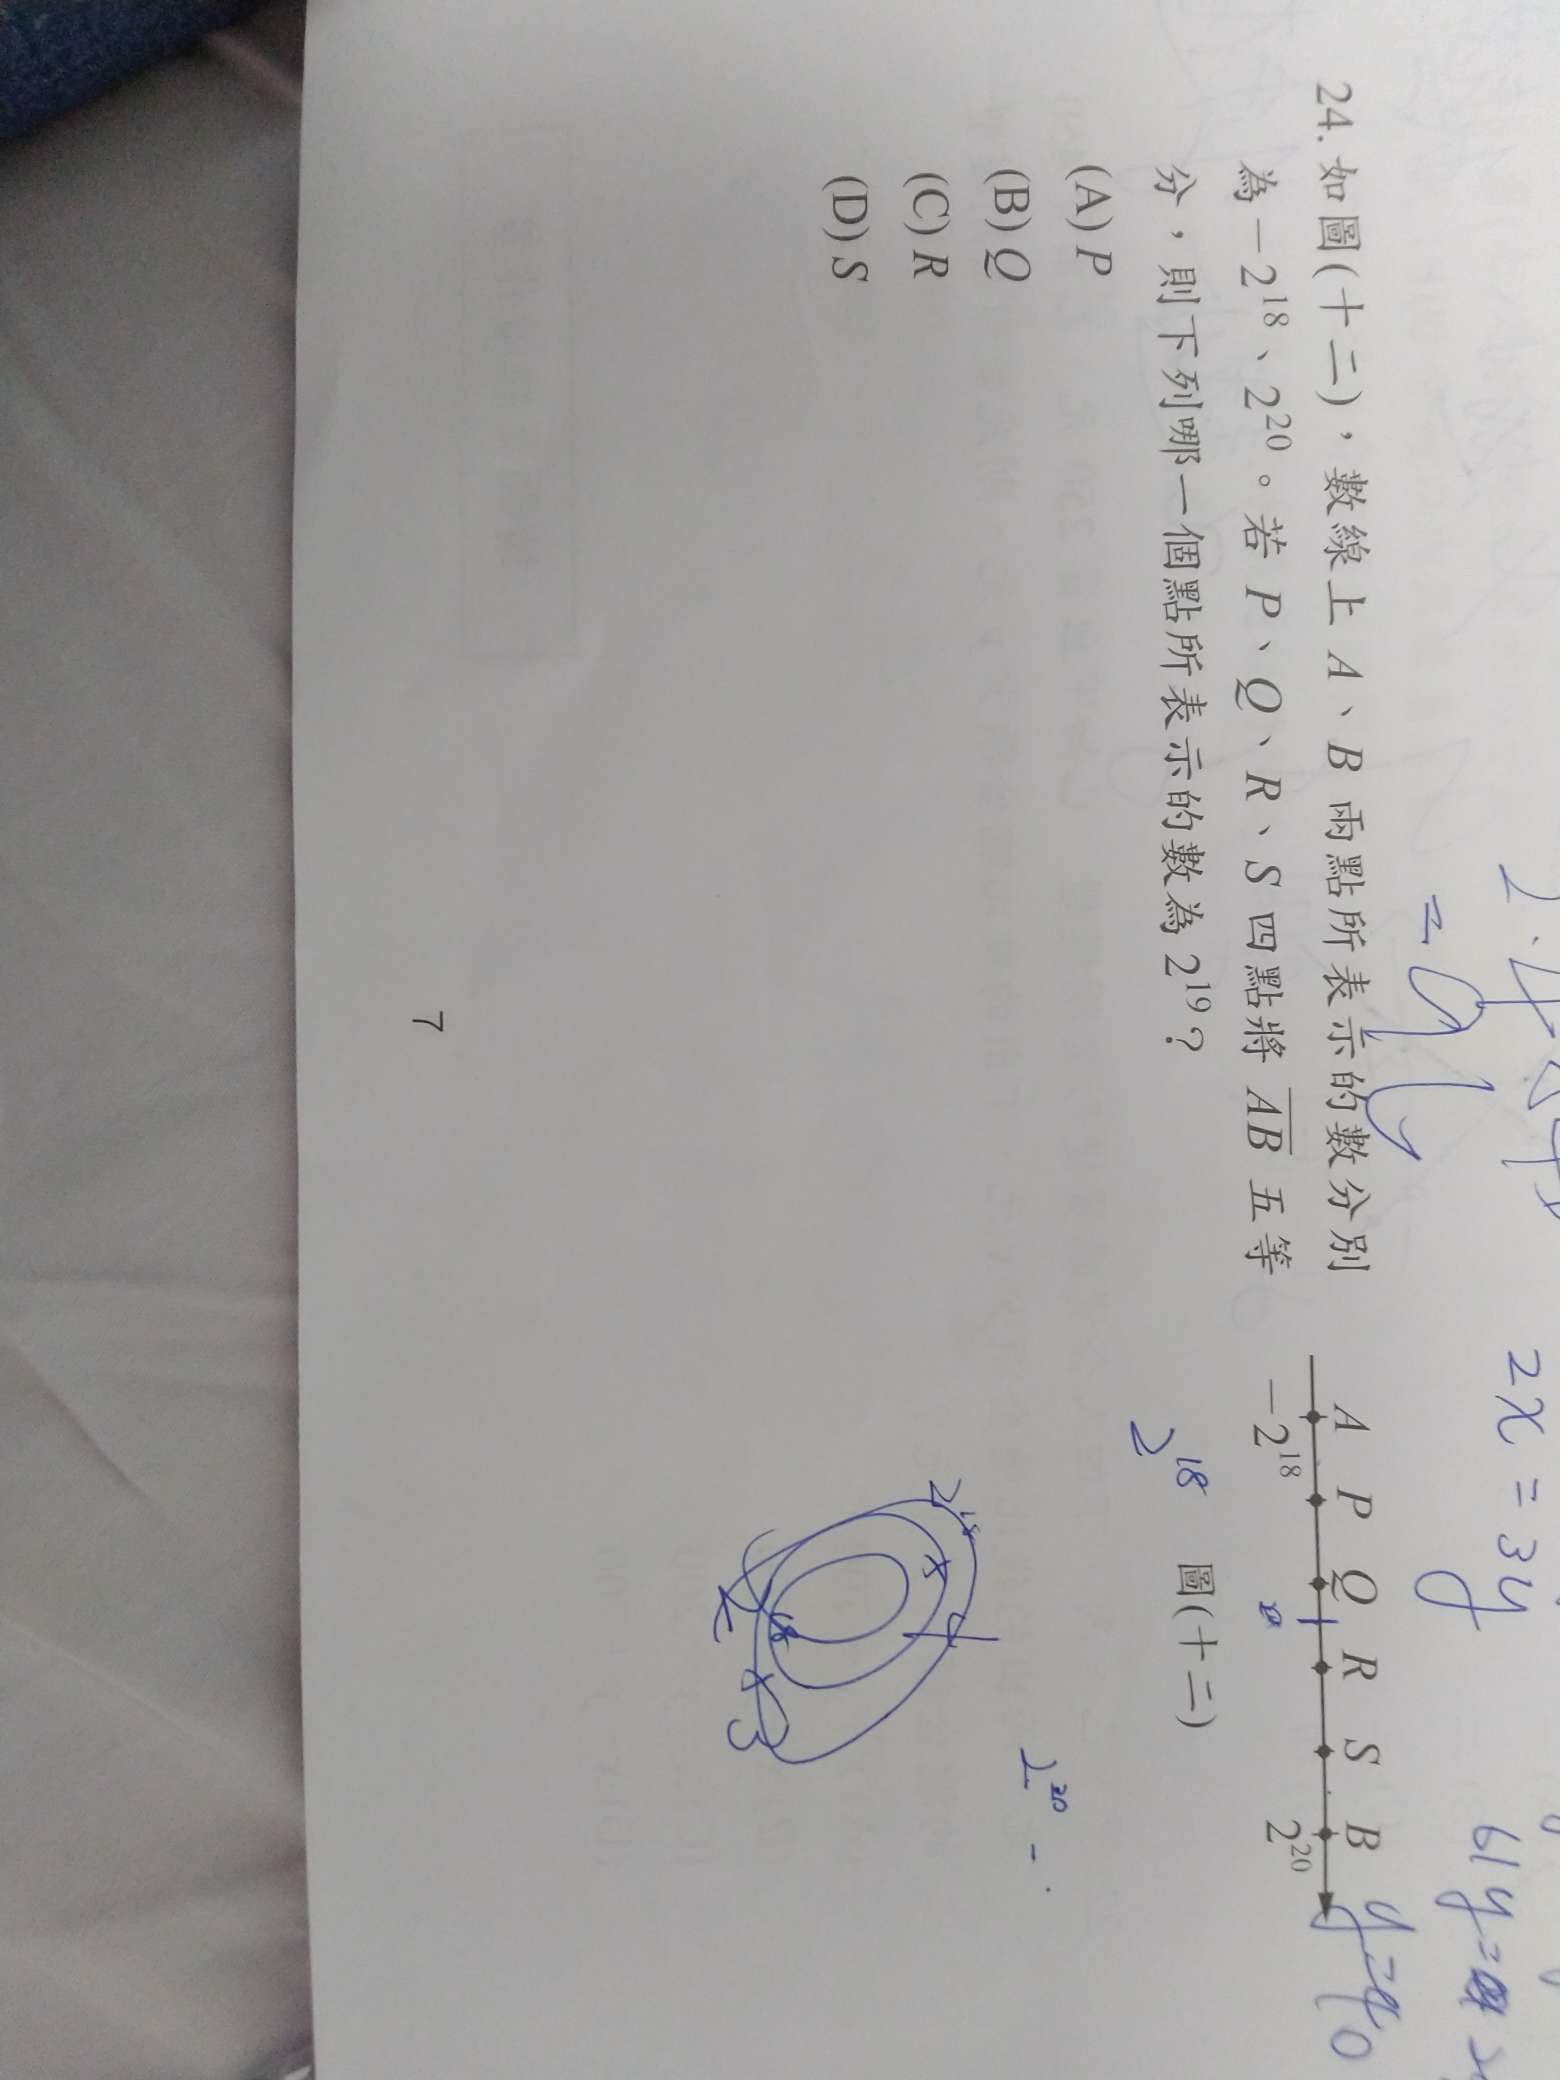 24. 如圖(十二)，數線上 A、B 兩點所表示的數分別
為－2¹⁸、2²⁰。若 P、Q、R、S 四點將 A̅B̅ 五等
分，則下列哪一個點所表示的數為 2¹⁹？
(A) P
(B) Q
(C) R
(D) S
A P Q R S B
－2¹⁸ 2²⁰
圖(十二)
2x = 3y
2¹⁸
2²⁰ -
2¹⁸
7